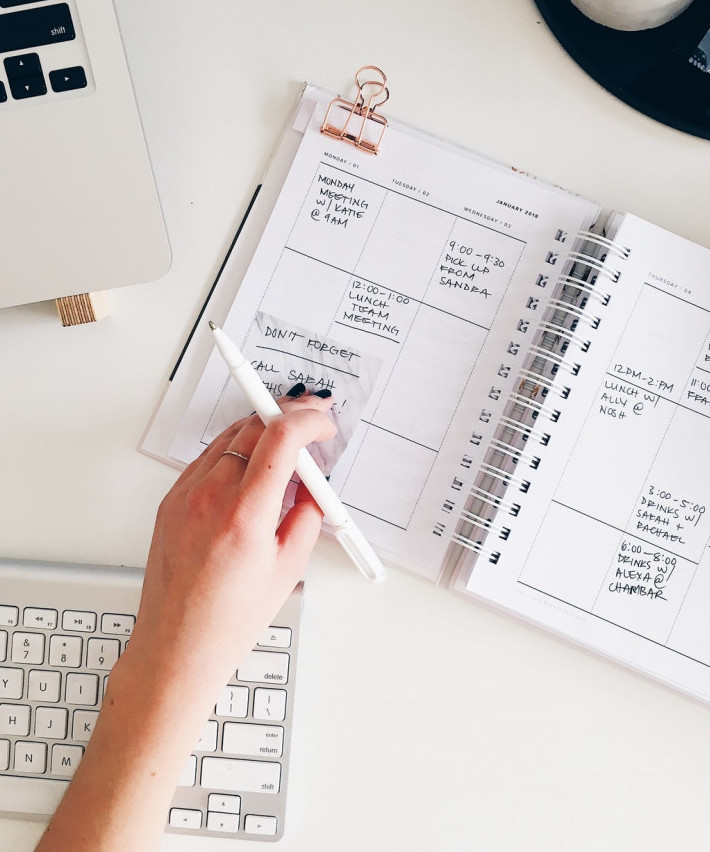 MONDAY / 01
MONDAY
MEETING
W/ KATIE
@ 9AM
TUESDAY / 02
12:00-1:00
LUNCH
TEAM
MEETING
JANUARY 2018
WEDNESDAY / 03
9:00-9:30
PICK UP
FROM
SANDRA
DON'T FORGET
CALL SARAH
THIS
!
THURSDAY / 04
12PM-2:PM
LUNCH W/
ALLY @
NOSH
11:00
3:00-5:00
DRINKS W/
SARAH +
RACHAEL
6:00-8:00
DRINKS W/
ALEXA @
CHAMBAR
shift
&
7
*
8
(
9
Y
U
I
H
J
K
N
M
delete
}
]
|
\
enter
return
shift